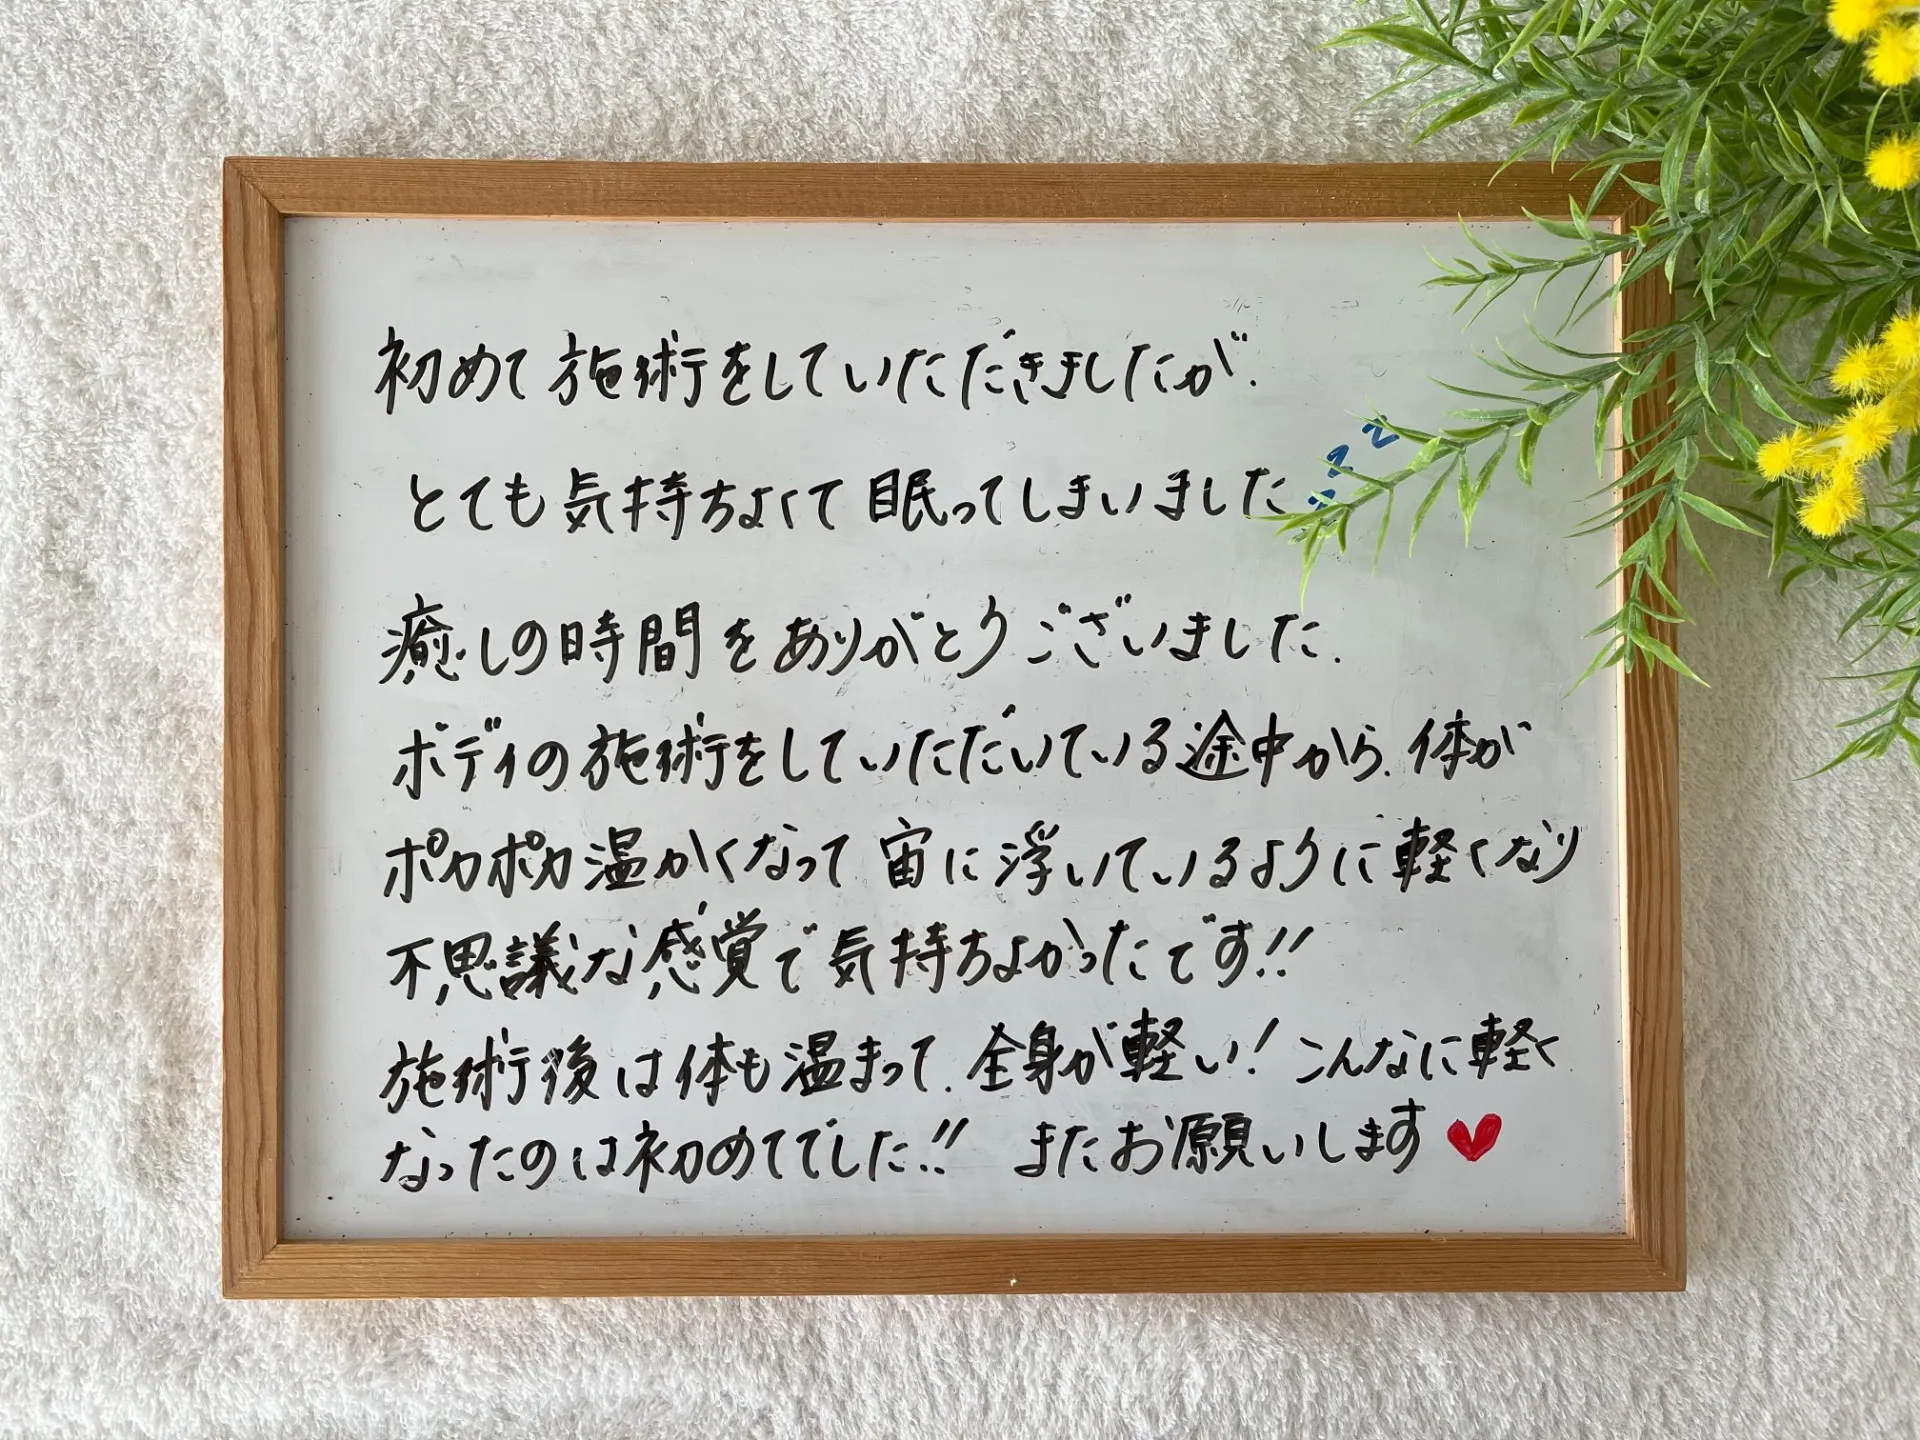 初めて施術をしていただきましたが、
とても気持ちよくて眠ってしまいました zzz
癒しの時間をありがとうございました。
ボディの施術をしていただいている途中から、体が
ポカポカ温かくなって宙に浮いているように軽くなり
不思議な感覚で気持ちよかったです!!
施術後は体も温まって、全身が軽い!こんなに軽く
なったのは初めてでした!! またお願いします♥